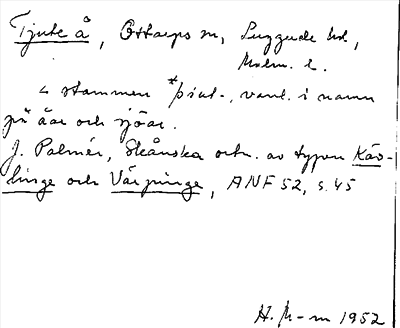 Tjute å, Ottarps sn, Luggude hd,
Malm. l.
< stammen *þiut-, vanl. i namn
på åar och sjöar.
J. Palmér, Skånska ortn. av typen Käv-
linge och Värpinge, ANF 52, s. 45
H. M-m 1952